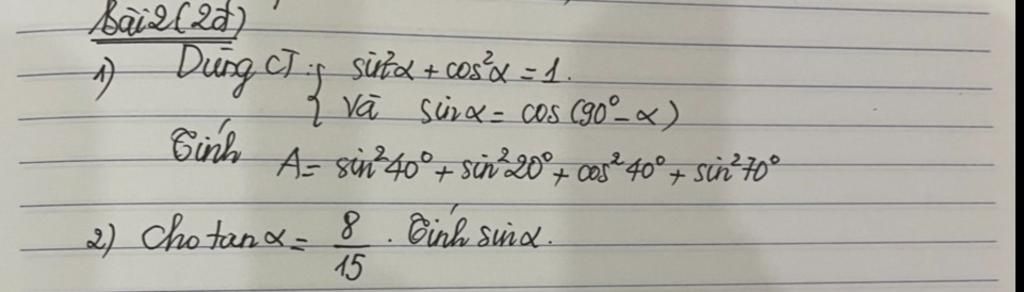 Bài 2 (2đ)
1) Dùng CT: { sin²α + cos²α = 1.
và sinα = cos (90° - α)
Tính A = sin²40° + sin²20° + cos²40° + sin²70°
2) Cho tanα = 8/15 . Tính sinα.